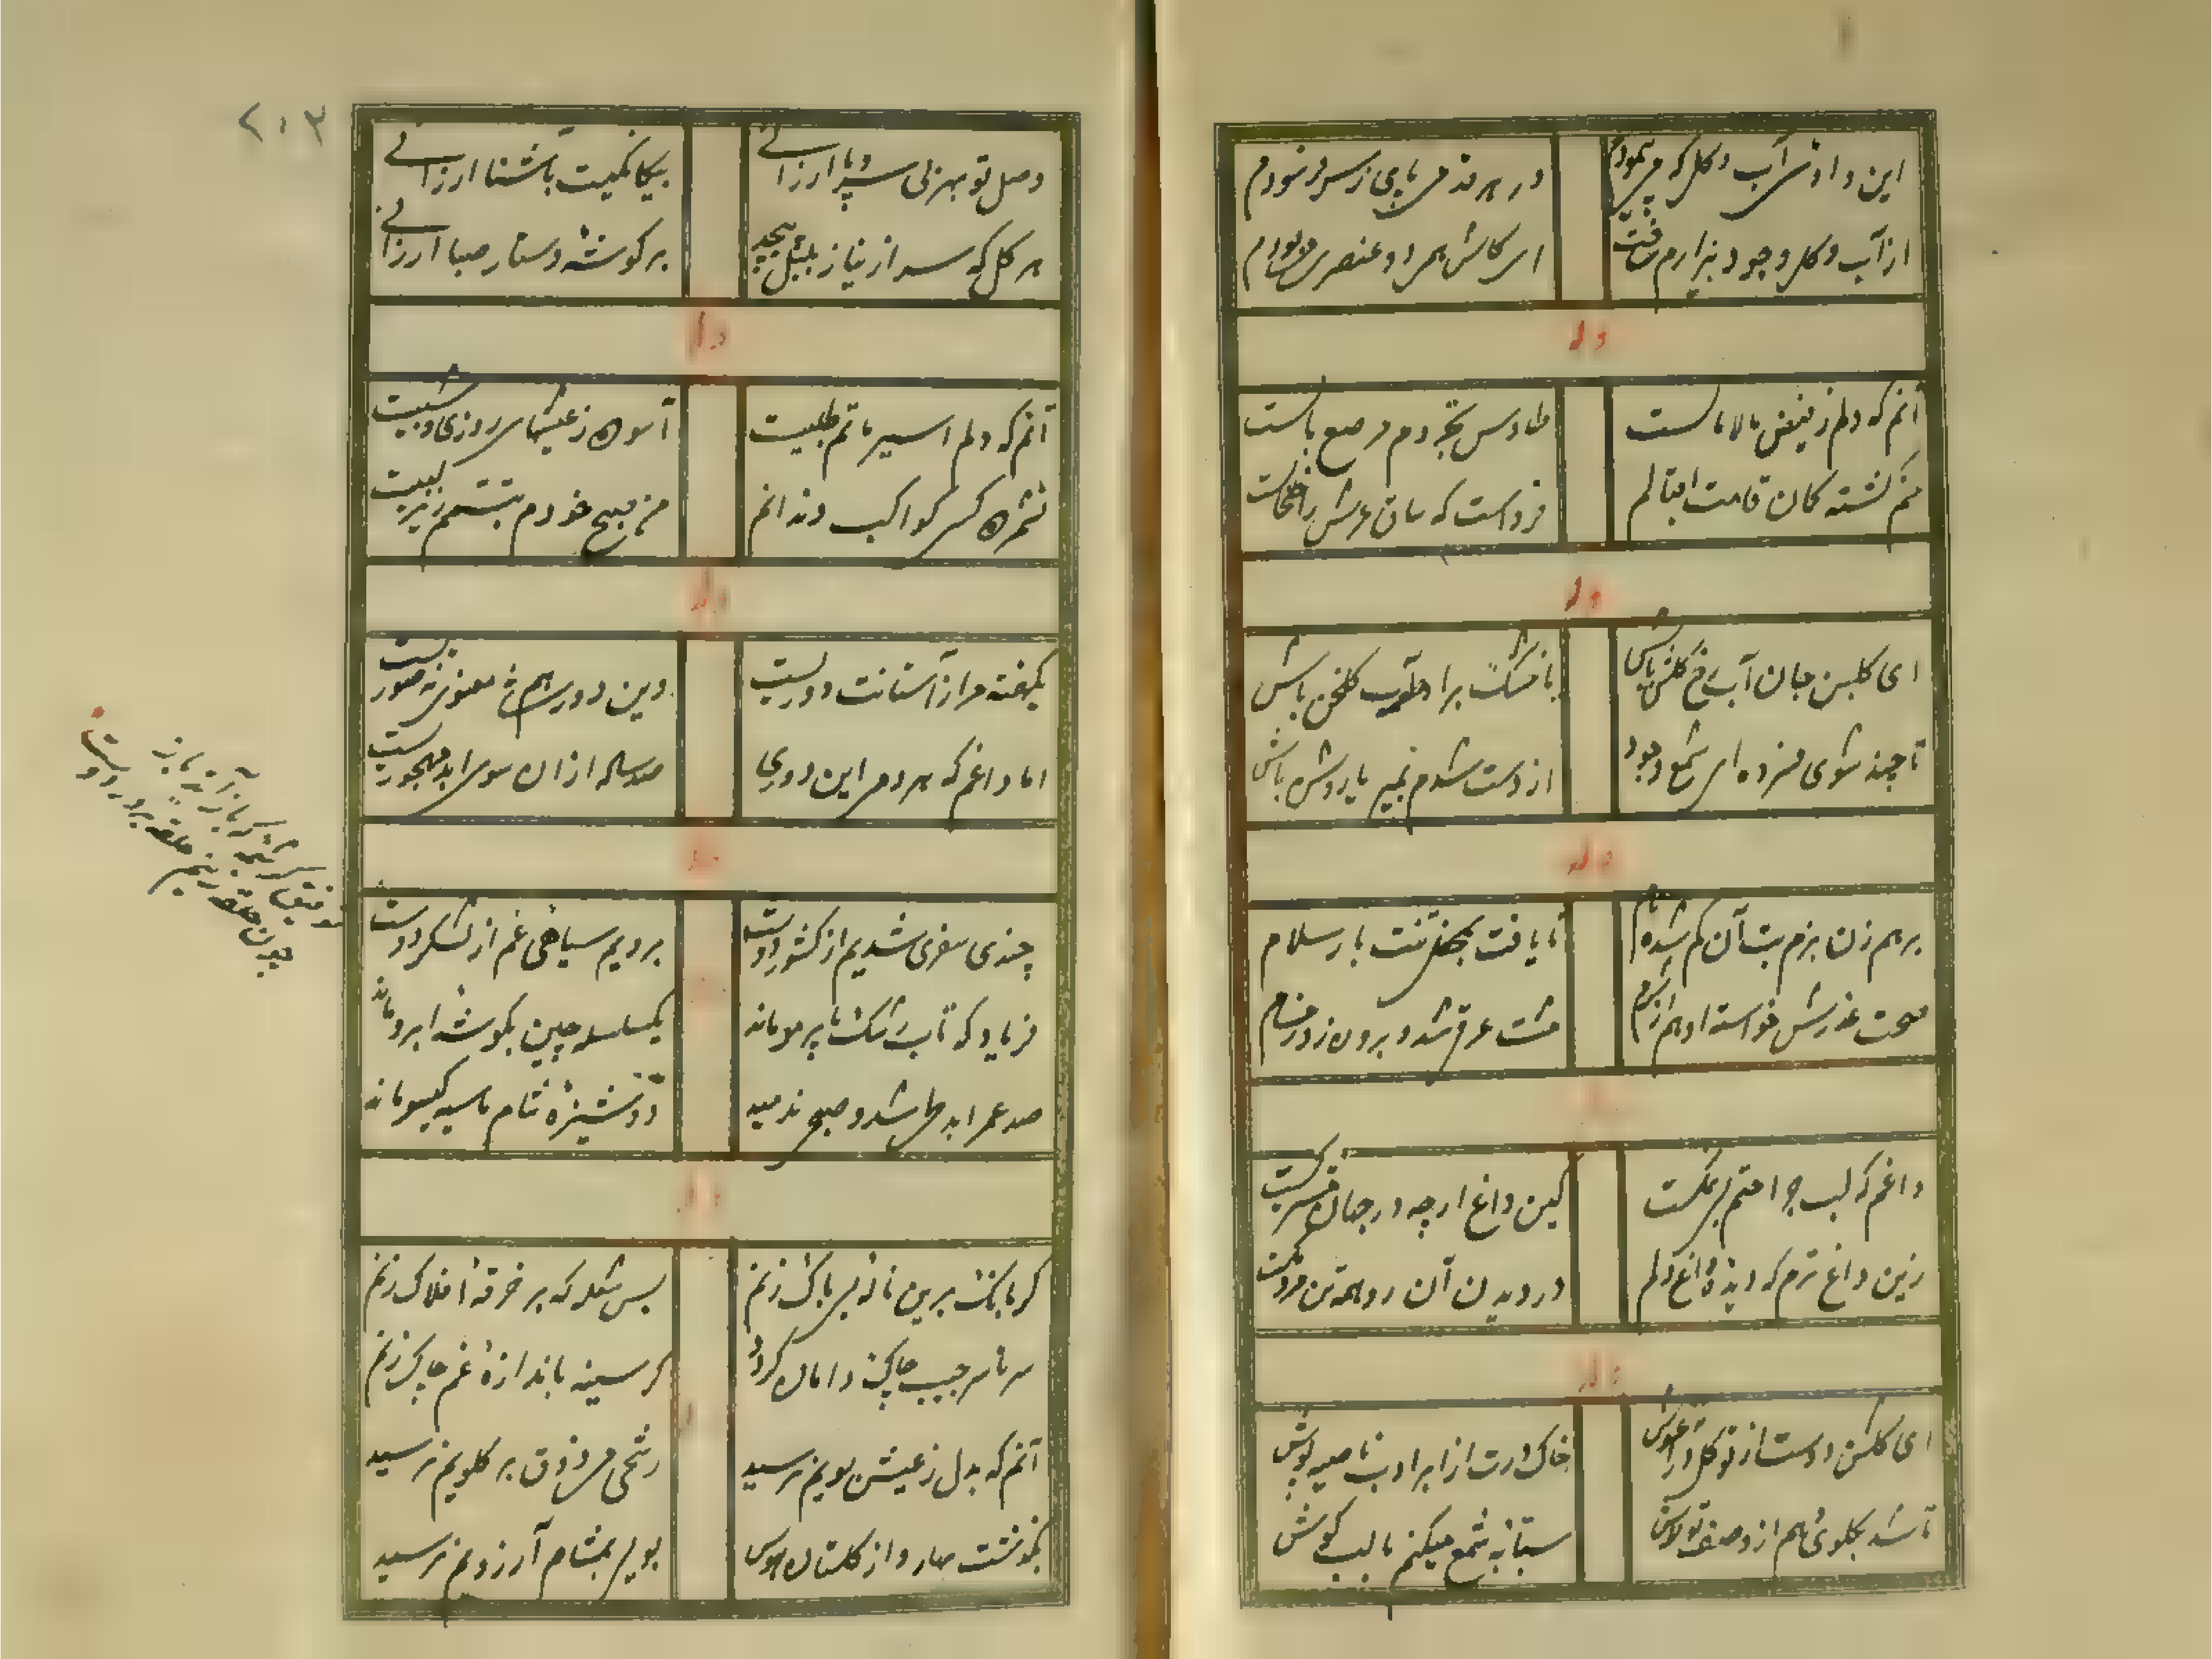 این وادی آب و گل که می‌پیمودم
در هر قدمی بپای سر فرسودم
از آب و گل وجود بیزارم
ای کاش همرا دو عنصری می‌بودم
وله
آنم که دلم ز فیض مالامالست
طاوس تجردم مرصع بالست
خم گشته کمان قامت اقبالم
فرداست که ساق عرش را خلخالست
وله
ای گلبن جان آب رخ گلشن باش
با خشک برادر آب گلخن باش
تا چند شوی فسرده ای شمع وجود
از دست شدم بمیر یا روشن باش
وله
برهم زن بزم بت آن گم شده نام
تا یافت بمحفل تنت بار سلام
صحت عذرش خواسته او هم از شرم
مشت عرقی شد و برون زد ز مسام
وله
داغم که لب جراحتم بی نمکست
کین داغ ارچه در جهان مشترکست
زین داغ ترم که دیده داغ دلم
در دیدن آن رو همه تن مردمکست
وله
ای گلشن دوست از تو گل در آغوش
خاک درت از ابر ادب ناصیه پوش
تا شد بگلوی هم از وصف تو
ستانه شمع میکنم با لب گوش
۲۰۳
وصل تو بهر بی سر و پا ارزانی
بیگانگیت بآشنا ارزانی
هر گل که سر از نیاز بلبل پیچد
بر گوشه دستار صبا ارزانی
وله
آنم که دلم اسیر ماتم طلبیست
آسوده ز عیشهای روزی و شبیست
نشمرده کسی کواکب دندانم
من صبح خودم تبسمم زیر لبیست
وله
یکهفته مرا ز آستانت دوریست
وین دوری هم معنوی نه صوریست
اما داغم که هر دم این دوری
صد ساله از ان سوی ابد مهجوریست
وله
چندی سفری شدیم از کشور دوست
بردیم سیاهی غم از لشکر دوست
توفیق کرشمه که باز آید باز
چون حلقه زنیم حلقه بر در دوست
فریاد که تاب رشک تا بر مو ماند
یکسلسله چین بگوشه ابرو ماند
صد عمر ابد طی شد و صبح ندمید
دوشیزه شام ما سیه گیسو ماند
وله
گر بانگ برین ناله بی باک زنم
بس شعله که بر خرقه افلاک زنم
سرتاسر جیب چاک و دامان گردد
گر سینه باندازه غم چاک زنم
وله
آنم که بدل ز عیش بویم نرسید
رشحی می ذوق بر گلویم نرسید
بگذشت بهار و از گلستان هوس
بویی بمشام آرزویم نرسید